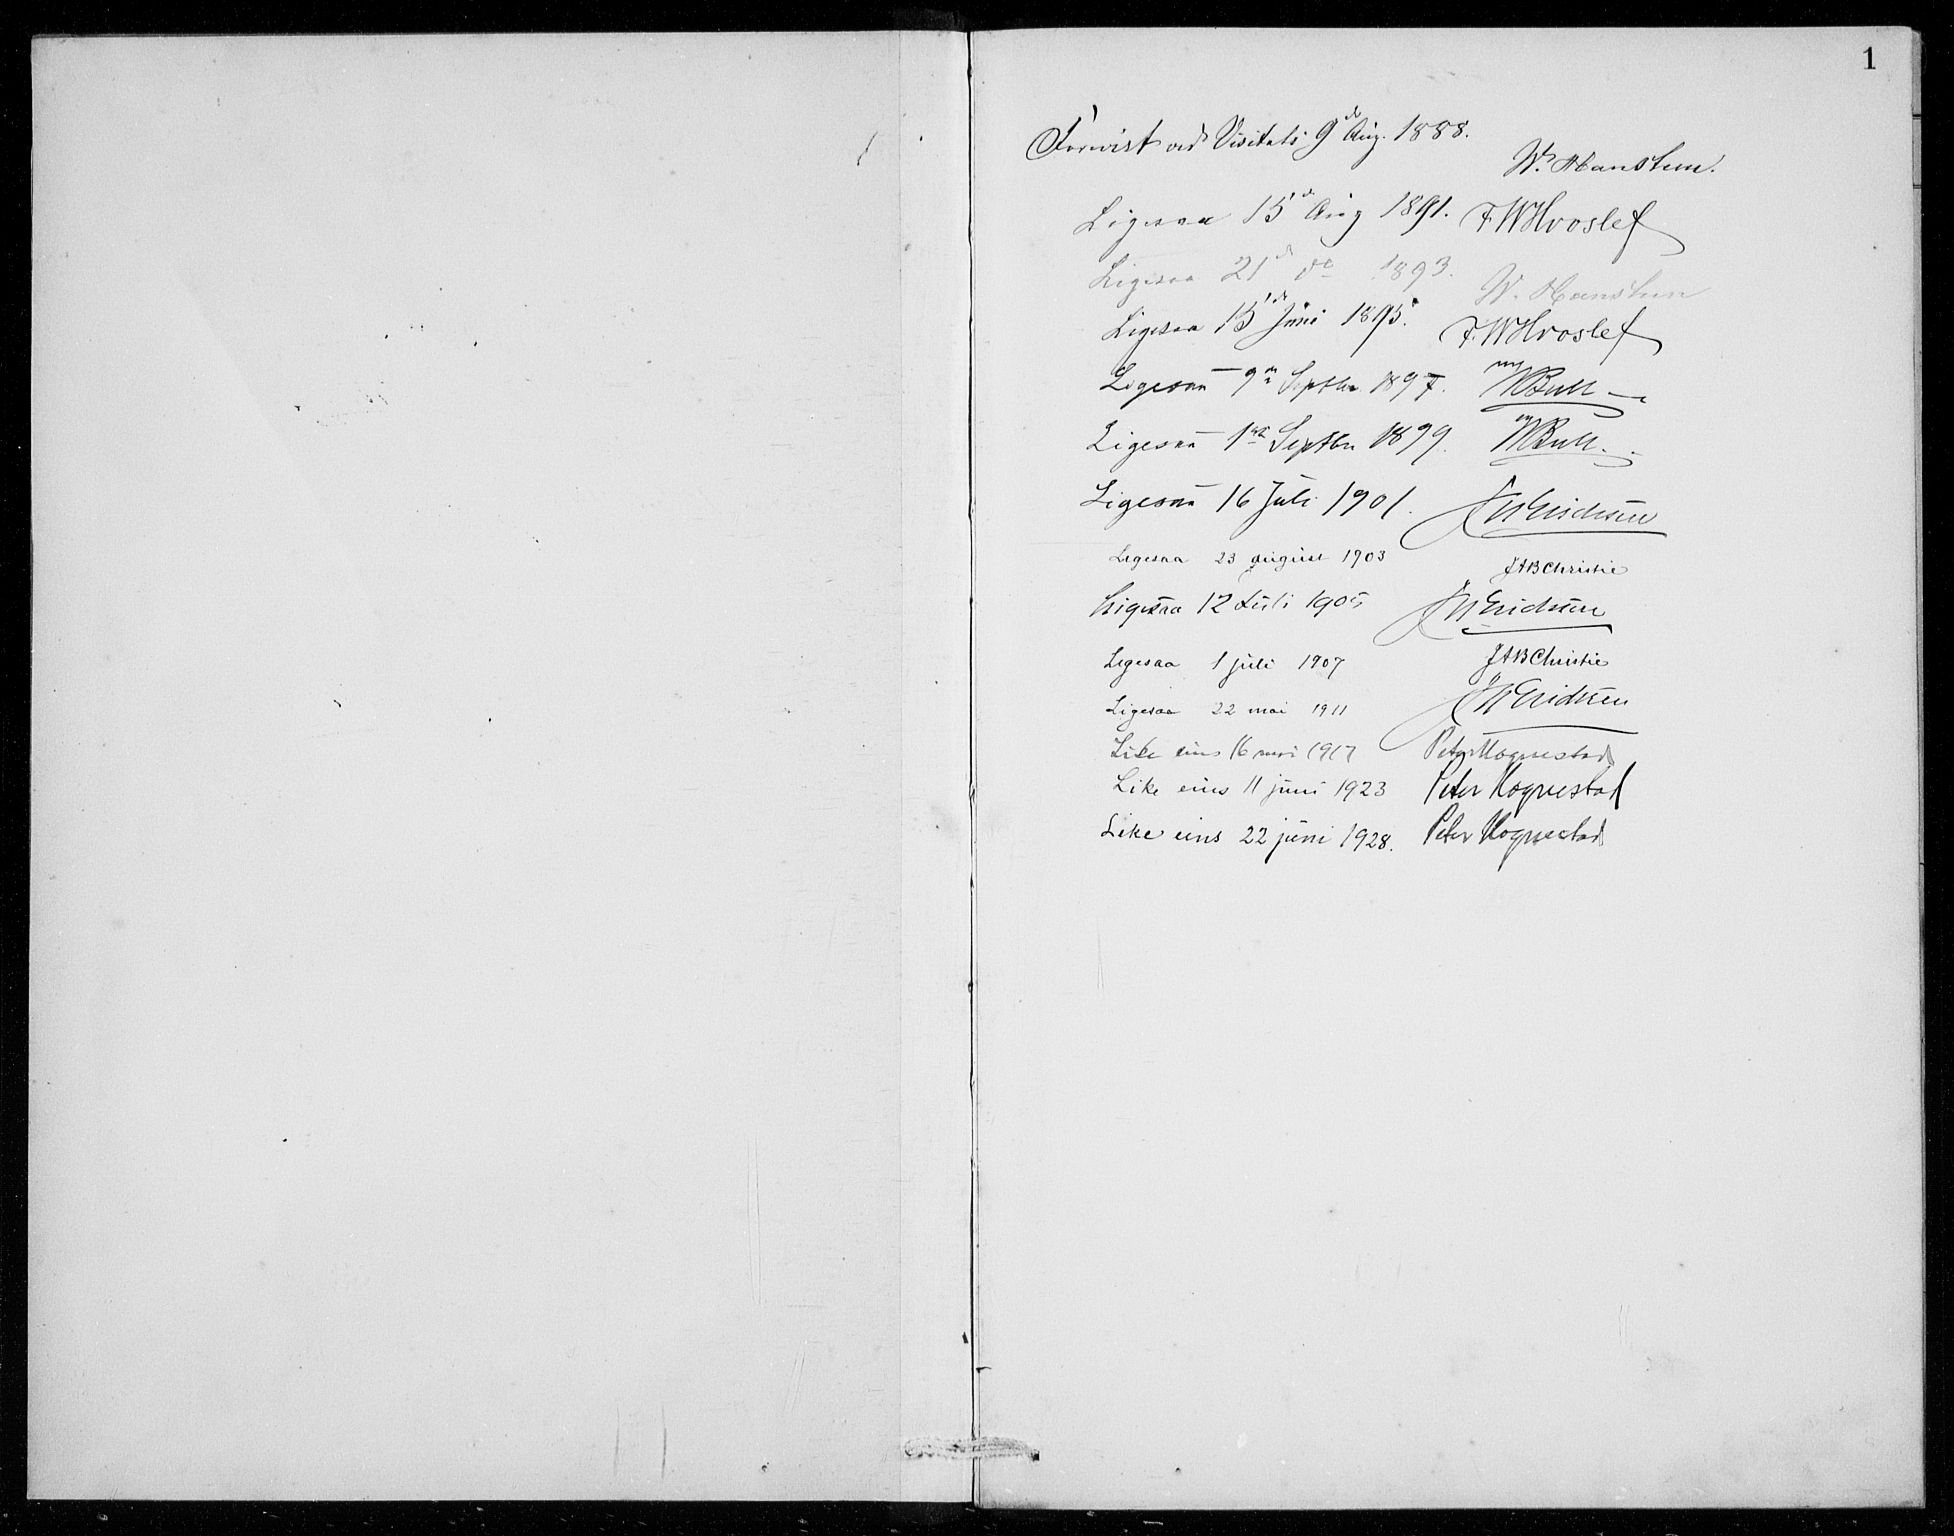 1
Forevist ved Visitats 9de Aug. 1888.
W. Hanssen.
Ligesaa 15de Aug 1891. F.W. Hvoslef
Ligesaa 21de do 1893. W. Hanssen
Ligesaa 15de Juni 1895. F.W. Hvoslef
Ligesaa 9de Septbr. 1897. WBull
Ligesaa 1ste Septbr 1899. WBull.
Ligesaa 16 Juli 1901. J W Erichsen
Ligesaa 23 august 1903 JABChristie
Ligesaa 12 Juli 1905 J W Erichsen
Ligesaa 1 juli 1907 JABChristie
Ligesaa 22 mai 1911 J W Erichsen
Like eins 16 mai 1917 Peter Hognestad
Like eins 11 juni 1923 Peter Hognestad
Like eins 22 juni 1928. Peter Hognestad